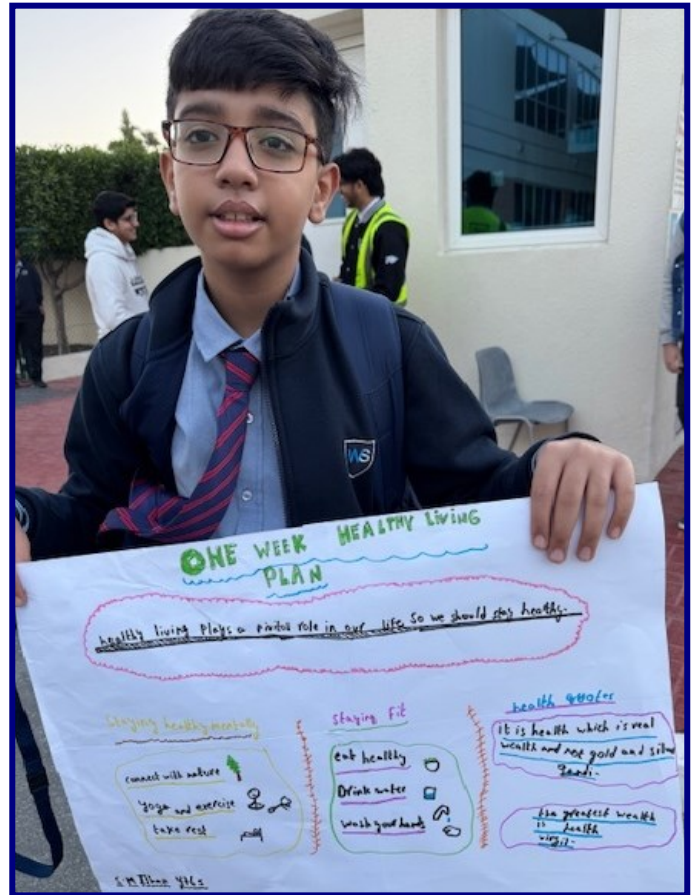 WS
ONE WEEK HEALTHY LIVING
PLAN
healthy living Plays a pivital role in our life so we should stay healthy.
Staying healthy mentally
connect with nature
Yoga and exercise
take rest
Staying Fit
eat healthy
Drink water
wash your hands
health quotes
it is health which is real
wealth and not gold and silver
the greatest wealth
is health
virgil.